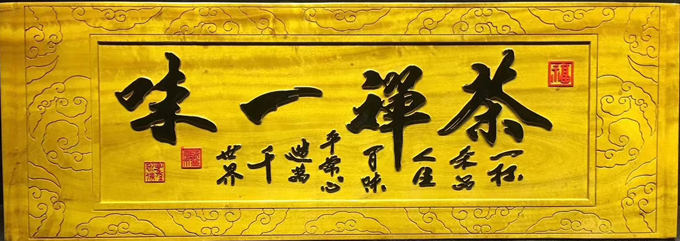 福
茶禪一味
一杯
茶品
人生
百味
平常心
造萬
千
世界